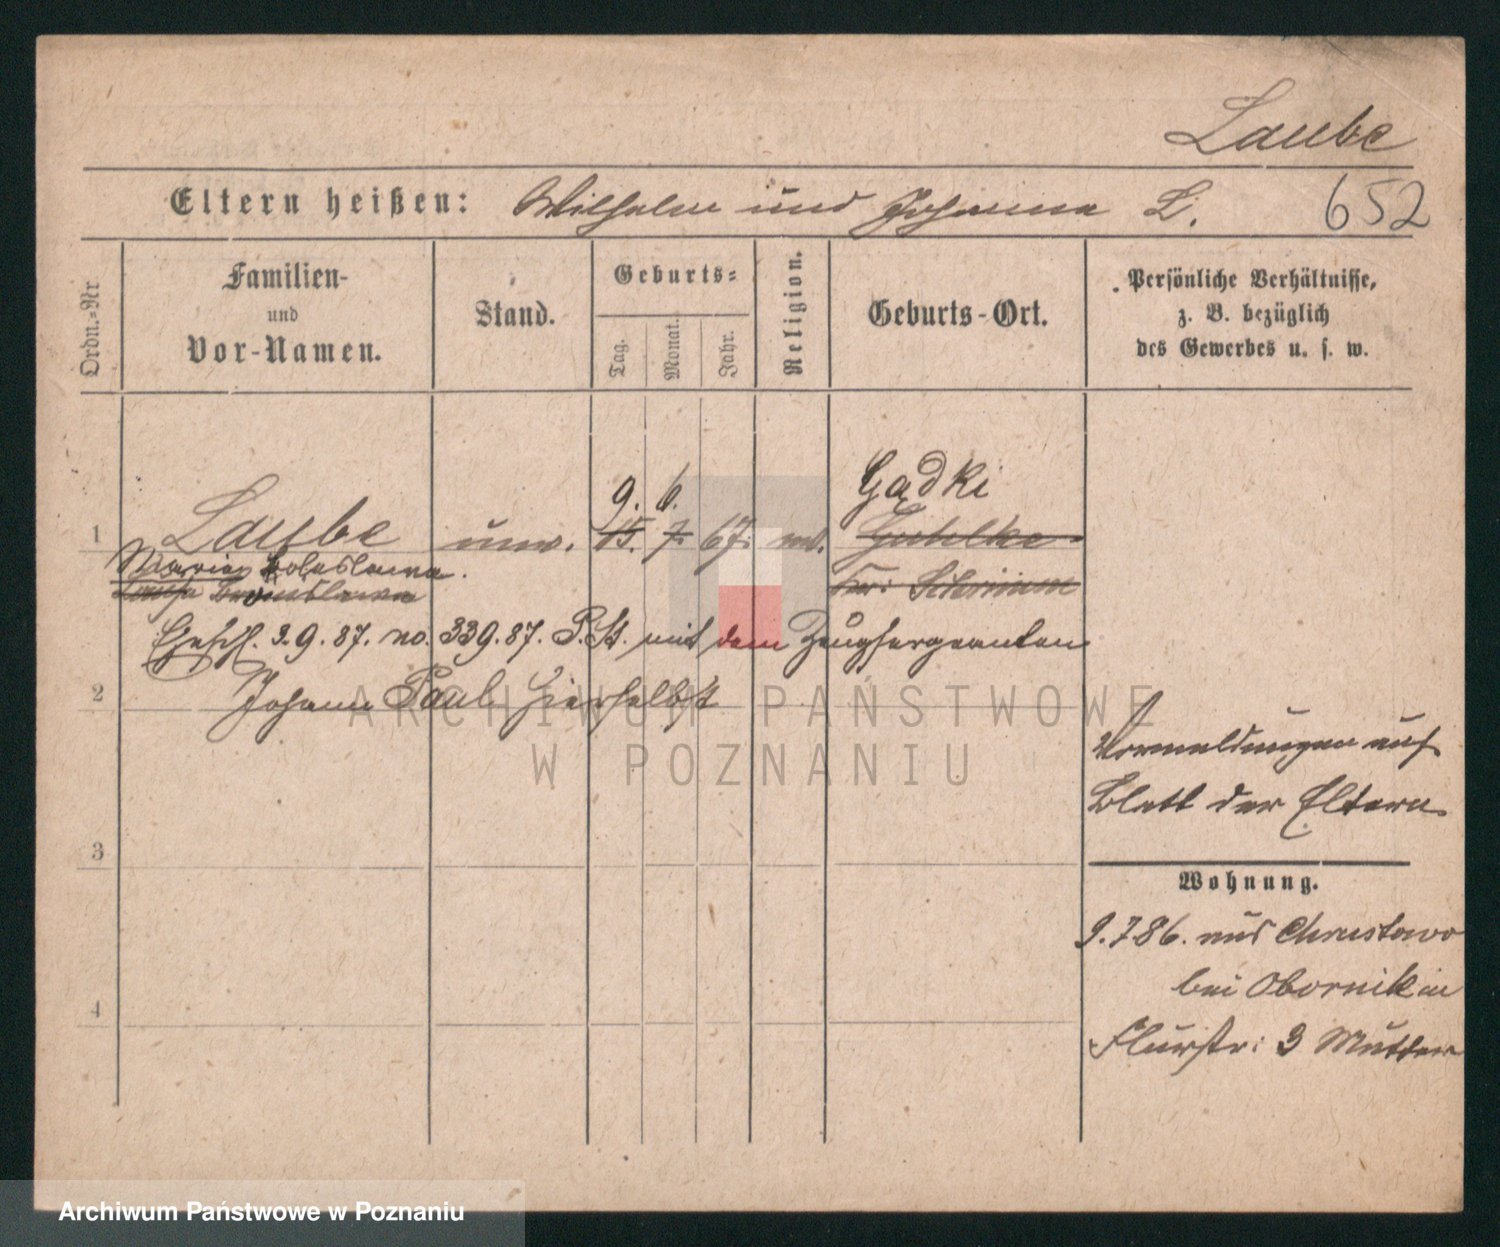 Laube
Eltern heißen: Wilhelm und Johanna L. 652
Ordn.=Nr
Familien-
und
Vor-Namen.
Stand.
Geburts=
Tag.
Monat.
Jahr.
Religion.
Geburts-Ort.
Persönliche Verhältnisse,
z. B. bezüglich
des Gewerbes u. s. w.
9. 6. Gądki
1 Laube unv. 15. 7. 67.
Maria Boleslawa.
Bronislawa
Schrimm
Eheschl. 3.9.87. no. 339.87. P.St. mit dem Zeugsergeanten
2 Johann Paul hierselbst
Vormeldungen auf
Blatt der Eltern
3
Wohnung.
9.7 86. aus Chrustowo
bei Obornik in
4
Flurstr: 3 Mutter
ARCHIWUM PAŃSTWOWE
W POZNANIU
Archiwum Państwowe w Poznaniu